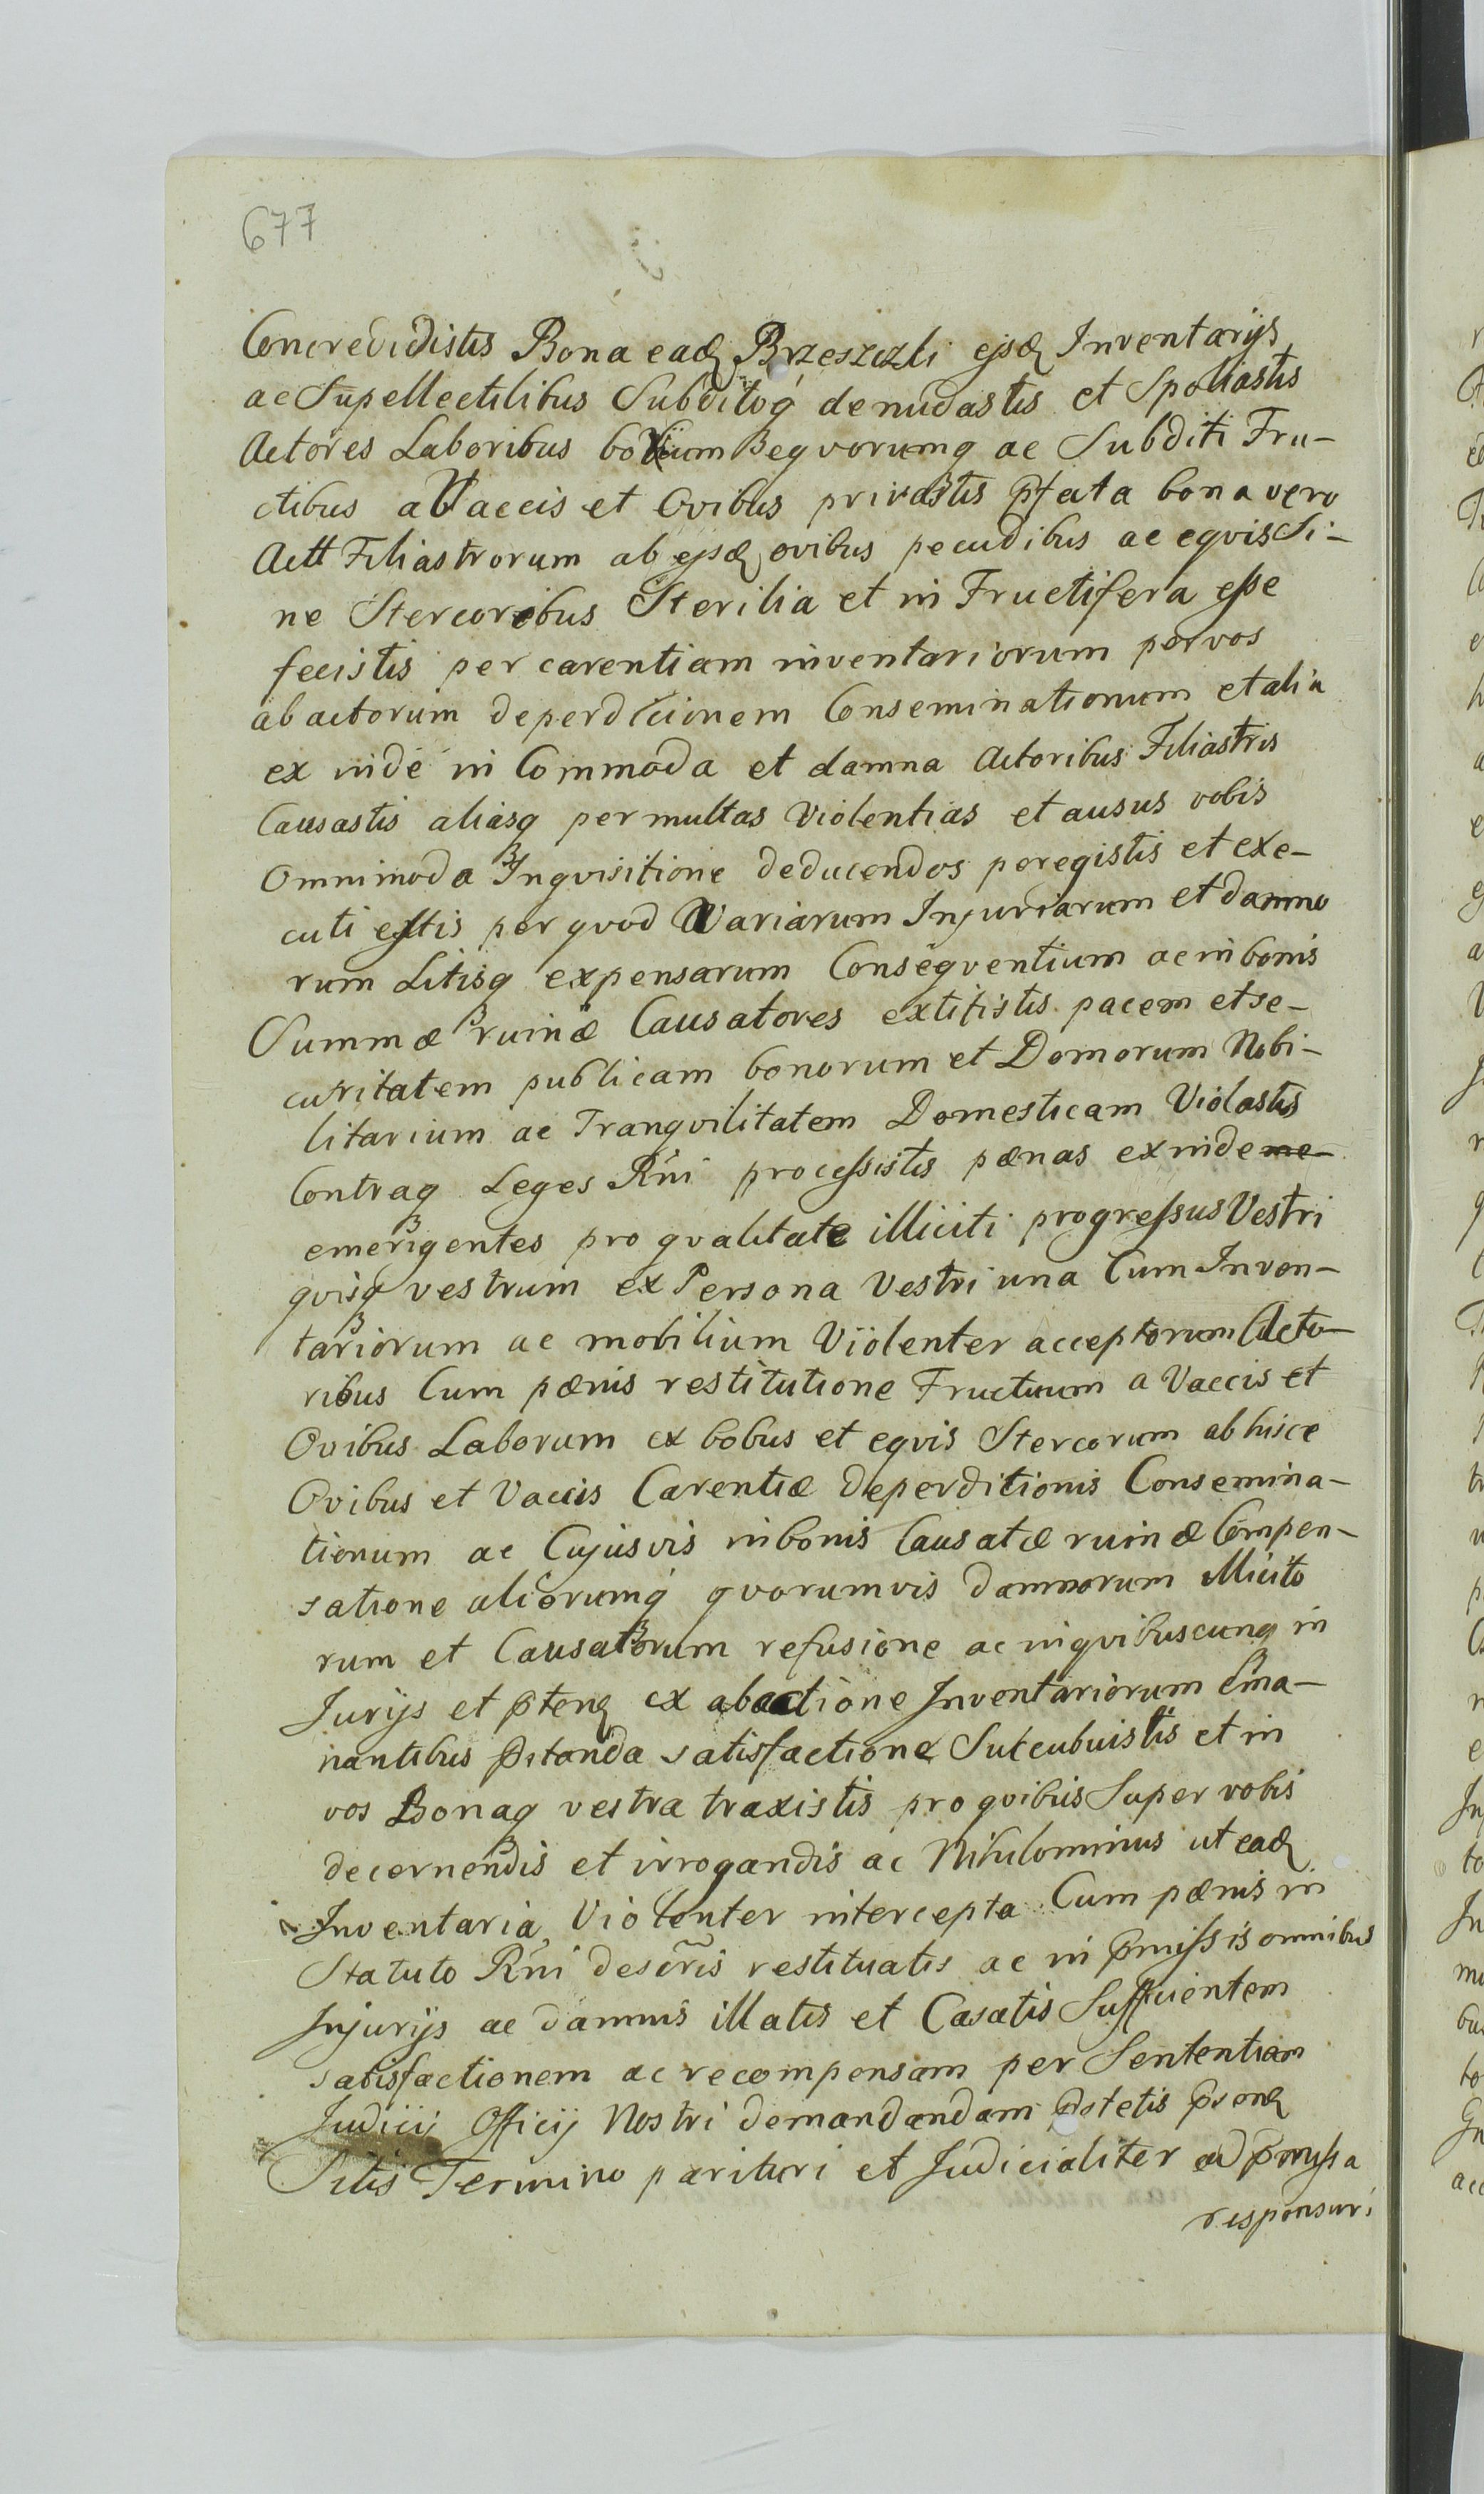 677
Concredidistis Bona eadꝫ Brzeszczki ejsdꝫ Inventarijs
ac Supellectilibus Subditoꝗ́ denudastis et Spoliastis
Actores Laboribus boVum eqvorumqꝫ ac Subditi Fru-
ctibus a Vaccis et Ovibus privastis p̄fata bona vero
Actt Filiastrorum ab ejsdꝫ ovibus pecudibus ac eqvis Si-
ne Stercoribus Sterilia et in Fructifera eſse
fecistis per carentiam inventariorum per vos
abactorum deperdicionem Conseminationum et alia
ex inde in Commoda et damna Actoribus Filiastris
Causastis aliasqꝫ permultas Violentias et ausus vobis
Omnimoda Inqvisitione deducendos peregistis et exe-
cuti eſtis per qvod Variarum Injuriarum et damno
rum Litisqꝫ expensarum Conseqventium ac in bonis
Summæ ruinæ Causatores extitistis pacem et se-
curitatem publicam bonorum et Domorum Nobi-
litarium ac Tranqvilitatem Domesticam Violastis
Contraqꝫ Leges Rni proceſsistis pænas exinde me
emergentes pro qvalitate illiciti progreſsus Vestri
qvisqꝫ vestrum ex Persona Vestri una Cum Inven-
tariorum ac mobilium Violenter acceptorum Acto-
ribus Cum pænis restitutione Fructuum a Vaccis et
Ovibus Laborum ex bobus et eqvis Stercorum ab hisce
Ovibus et Vaccis Carentiæ deperditionis Consemina-
tionum ac Cujusvis in bonis Causatæ ruinæ Compen-
satione aliorumq́ qvorumvis damnorum illicito
rum et Causatorum refusione ac in qvibuscunqꝫ in
Jurijs et p̄tenꝫ ex abactione Inventariorum Ema-
nantibus p̄standa satisfactione Succubuistis et in
vos Bonaqꝫ vestra traxistis pro qvibus Super vobis
decernendis et irrogandis ac Nihilominus ut eadꝫ
Inventaria Violenter intercepta Cum pænis in
Statuto Rni descr̃is restituatis ac in p̄miſsis omnibus
Injurijs ac damnis illatis et Casatis Sufficientem
satisfactionem ac recompensam per Sententiam
Judicij Officij Nostri demandandam p̄stetis p̄senꝫ
Sitis Termino parituri et Judicialiter ad p̄miſsa
responsuri